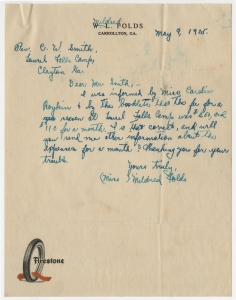 Mildred
W. L. FOLDS
CARROLLTON, GA.
May 9, 1925.
Rev. C. W. Smith,
Laurel Falls Camp,
Clayton Ga
Dear Mr. Smith,-
I was informed by Miss Caroline
& by the Booklets that the fee for a
season at Laurel Falls Camp was $200, and
$110 for a month. Is that correct, and will
you send me other information about the
expenses for a month? Thanking you for your
trouble.
Yours truly,
(Miss) Mildred Folds
Firestone